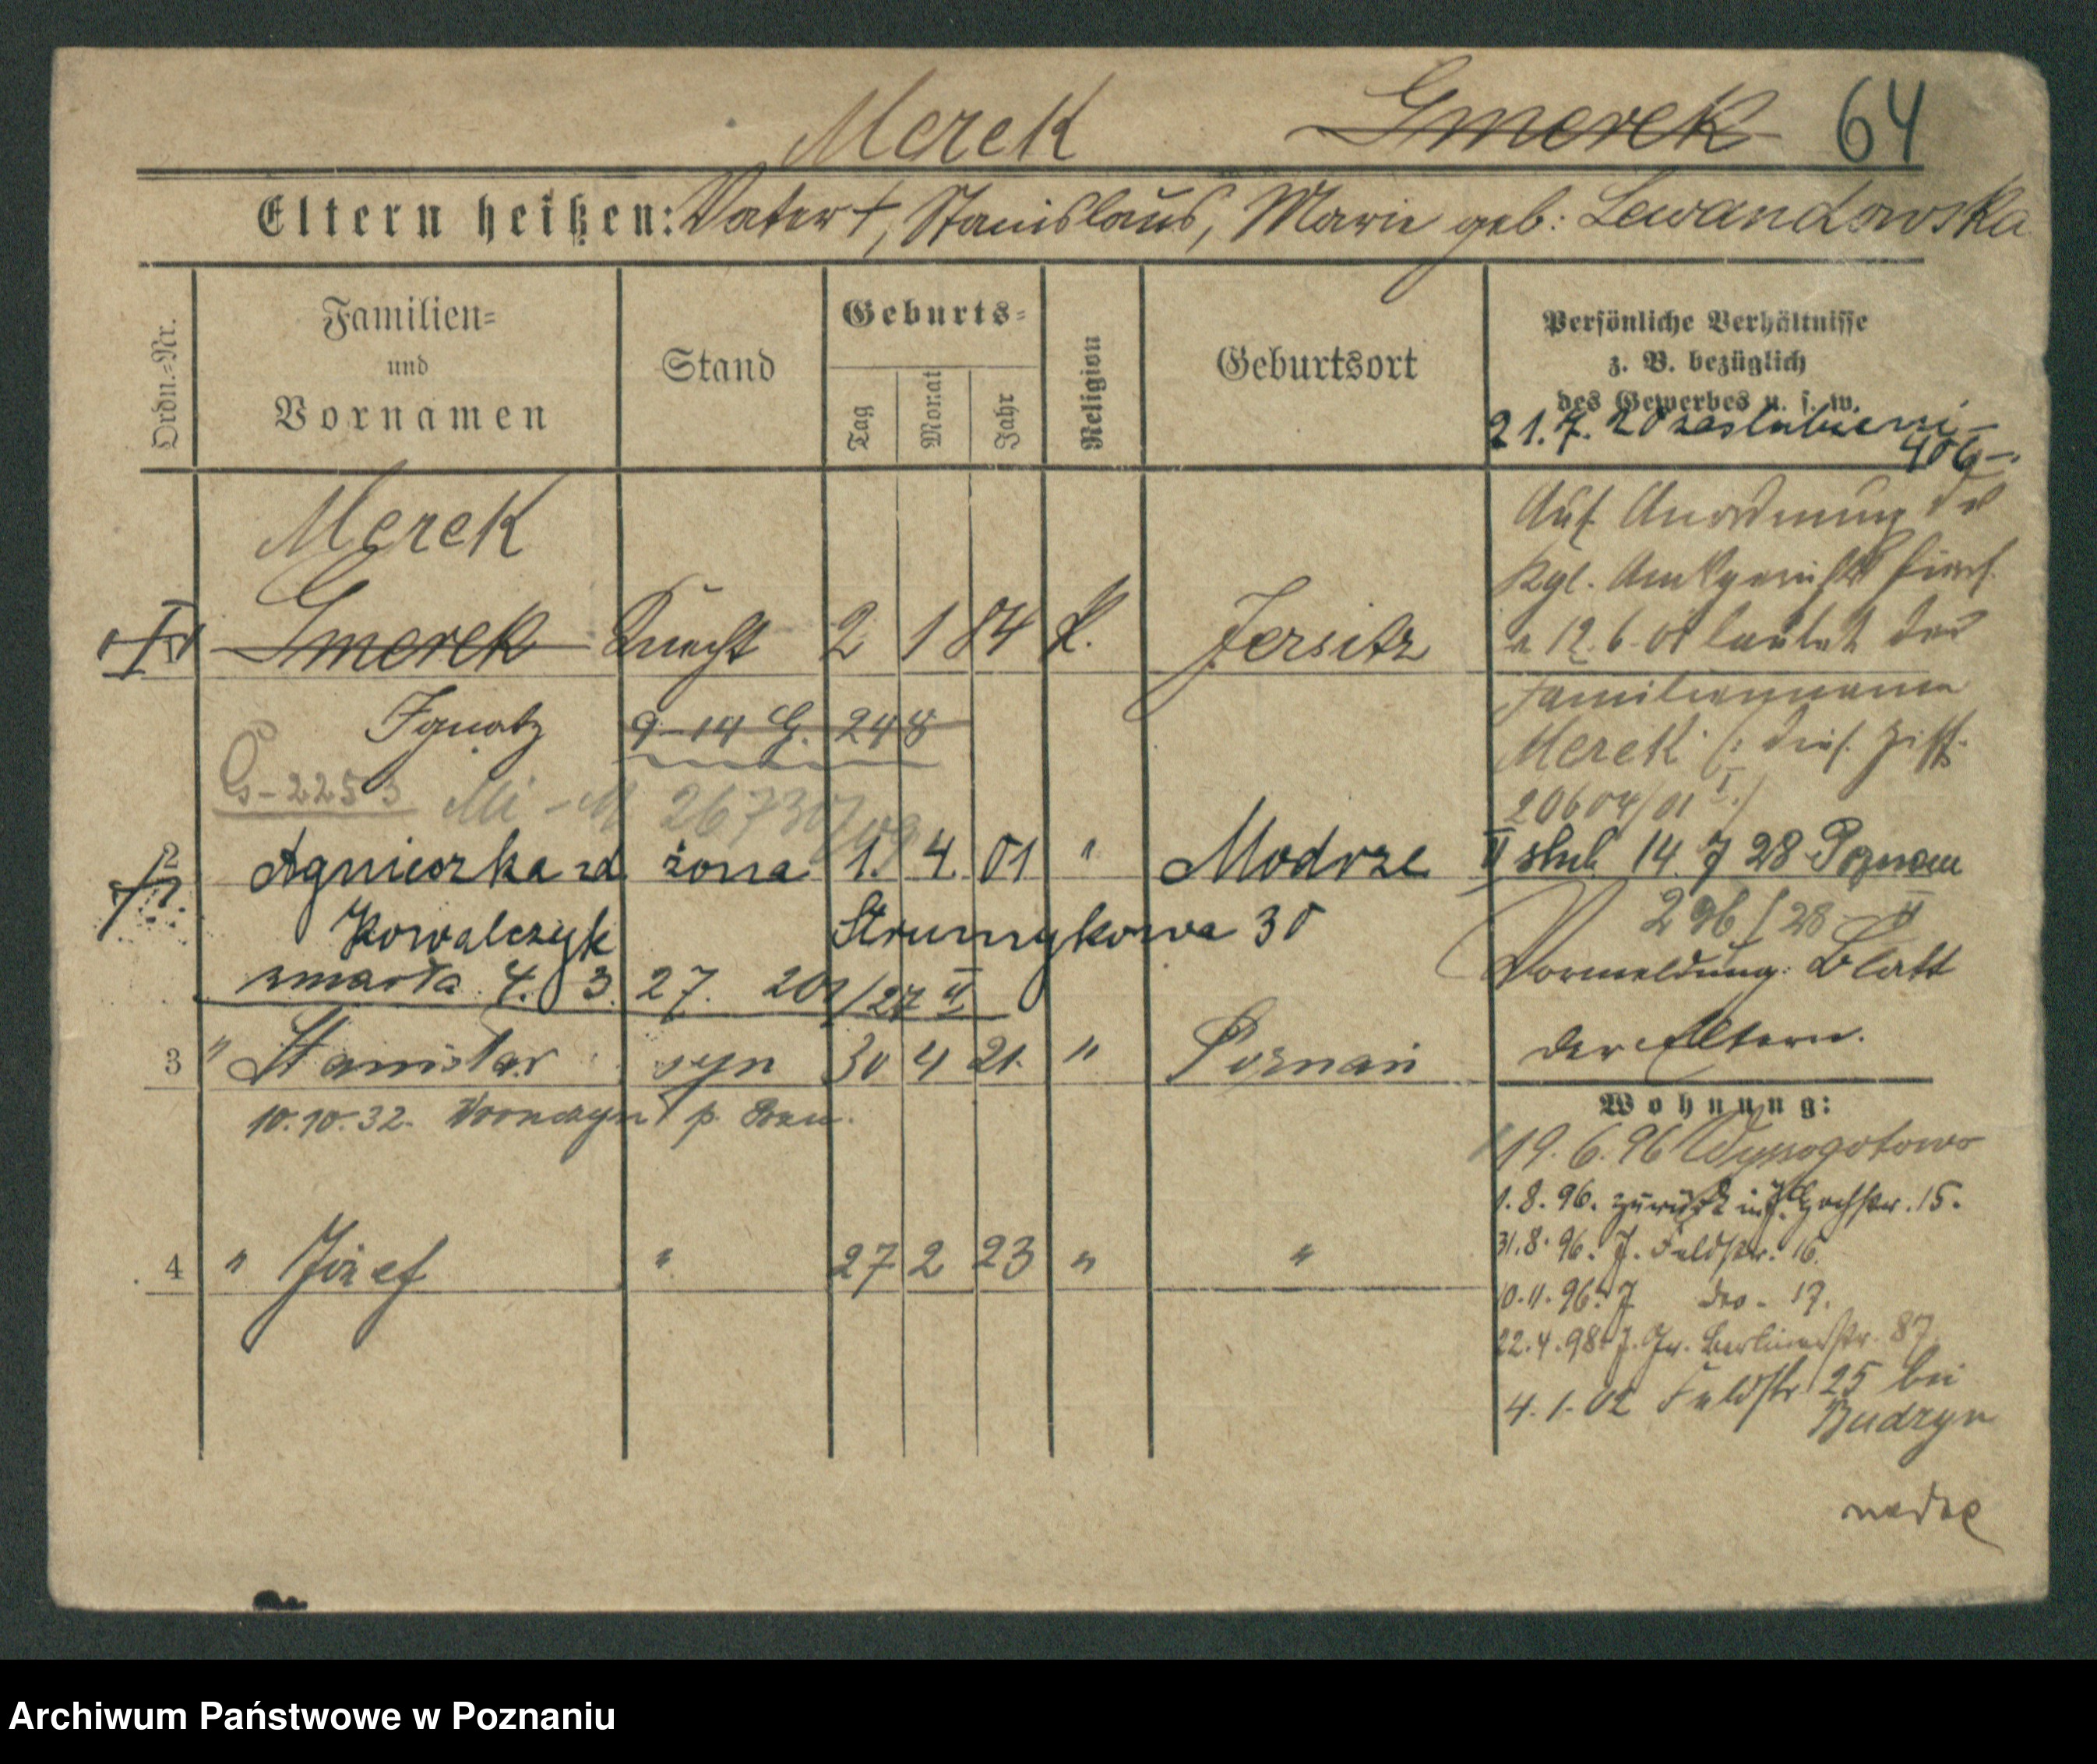 Merek Gmerek 64
Eltern heißen: Vater †, Stanislaus, Marie geb: Lewandowska
Ordn.-Nr.
Familien-
und
Vornamen
Stand
Geburts-
Tag
Monat
Jahr
Religion
Geburtsort
Persönliche Verhältnisse
z. B. bezüglich
des Gewerbes u. s. w.
21.7.20 zaslubieni
406
Merek
Gmerek Knecht 2 1 84 k. Jersitz
Ignatz 9-14 G. 248
G-2253 Mi-M 26730/09
2 Agnieszka zd żona 1. 4. 01 " Modrze
Kowalczyk Strumykowa 30
zmarła 4. 3. 27. 201/27 II
3 " Stanisław syn 30 4 21. " Poznań
10.10.32.
4 " Józef " 27 2 23 " "
Auf Anordnung des
Kgl. Amtsgerichts hiers.
12.6.01 lautet der
Familienname
Merek (: dies. Ziff.
20604/01 I :)
II ślub 14. 7 28 Poznań
296/28 II
Vormeldung: Blatt
der Eltern.
Wohnung:
19.6.96 Wyssogotowo
1.8.96. zurück in J. Hochstr. 15.
31.8.96. J. Feldstr. 16.
10.11.96. J. dto. 17.
22.4.98. J. Gr. Berlinerstr. 87
4.1.02 Feldstr. 25 bei
Budzyn
Archiwum Państwowe w Poznaniu